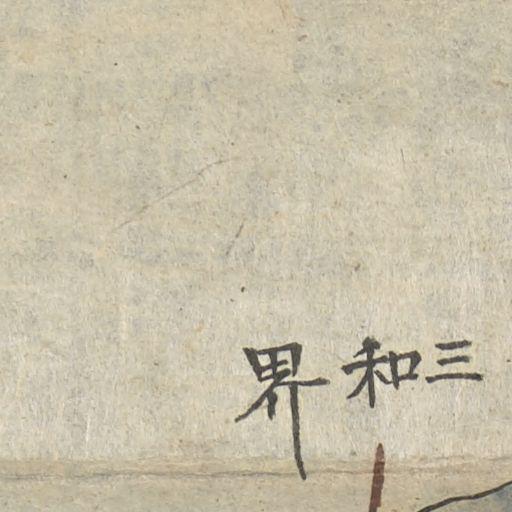 三和界